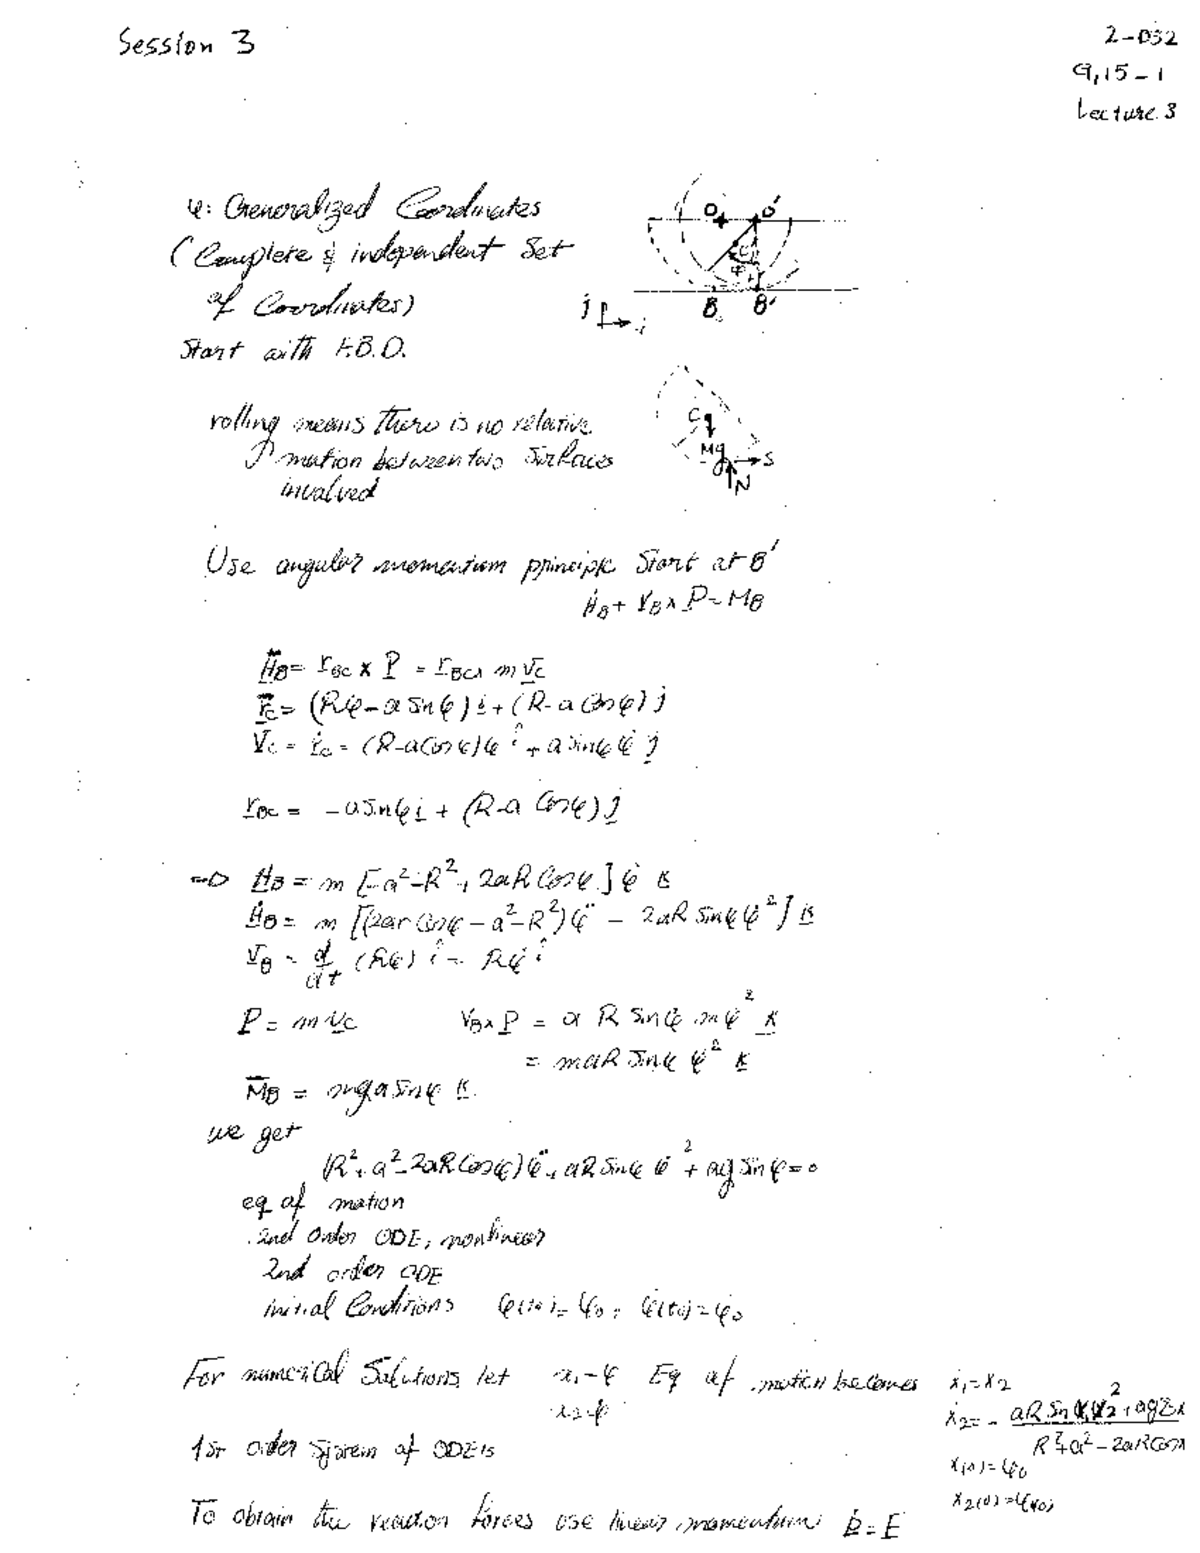 Session 3
2-032
9,15-1
Lecture 3
φ: Generalized Coordinates
(Complete & independent Set
of Coordinates)
Start with F.B.D.
O O'
φ
B B'
j i
rolling means there is no relative
motion between two surfaces
involved
C
Mg
S
N
Use angular momentum principle Start at B'
Ḣ_B + V_B x P = M_B
H_B = r_BC x P = r_BC x m V_C
r_C = (Rφ - a sin φ) i + (R - a Cos φ) j
V_C = ṙ_C = (R - a Cos φ) φ̇ î + a sin φ φ̇ j
r_BC = -a sin φ i + (R - a Cos φ) j
=> H_B = m [-a² - R² + 2aR Cos φ] φ̇ K
Ḣ_B = m [(2ar Cos φ - a² - R²) φ̈ - 2aR sin φ φ̇²] K
V_B = d/dt (Rφ) î = Rφ̇ î
P = m V_C V_B x P = a R Sin φ m φ̇² K
= maR sin φ φ̇² K
M_B = mga sin φ K
we get
(R² + a² - 2aR Cos φ) φ̈ + aR sin φ φ̇² + ag sin φ = 0
eq of motion
2nd order ODE, nonlinear
2nd order ODE
initial Conditions φ(t0) = φ0, φ̇(t0) = φ̇0
For numerical Solutions, let x1 = φ Eq of motion becomes ẋ1 = x2
x2 = φ̇ ẋ2 = - aR Sin x1 x2² + ag
R² + a² - 2aR Cos x
1st order System of ODE's
x1(0) = φ0
x2(0) = φ̇(0)
To obtain the reaction forces use linear momentum: Ṗ = F